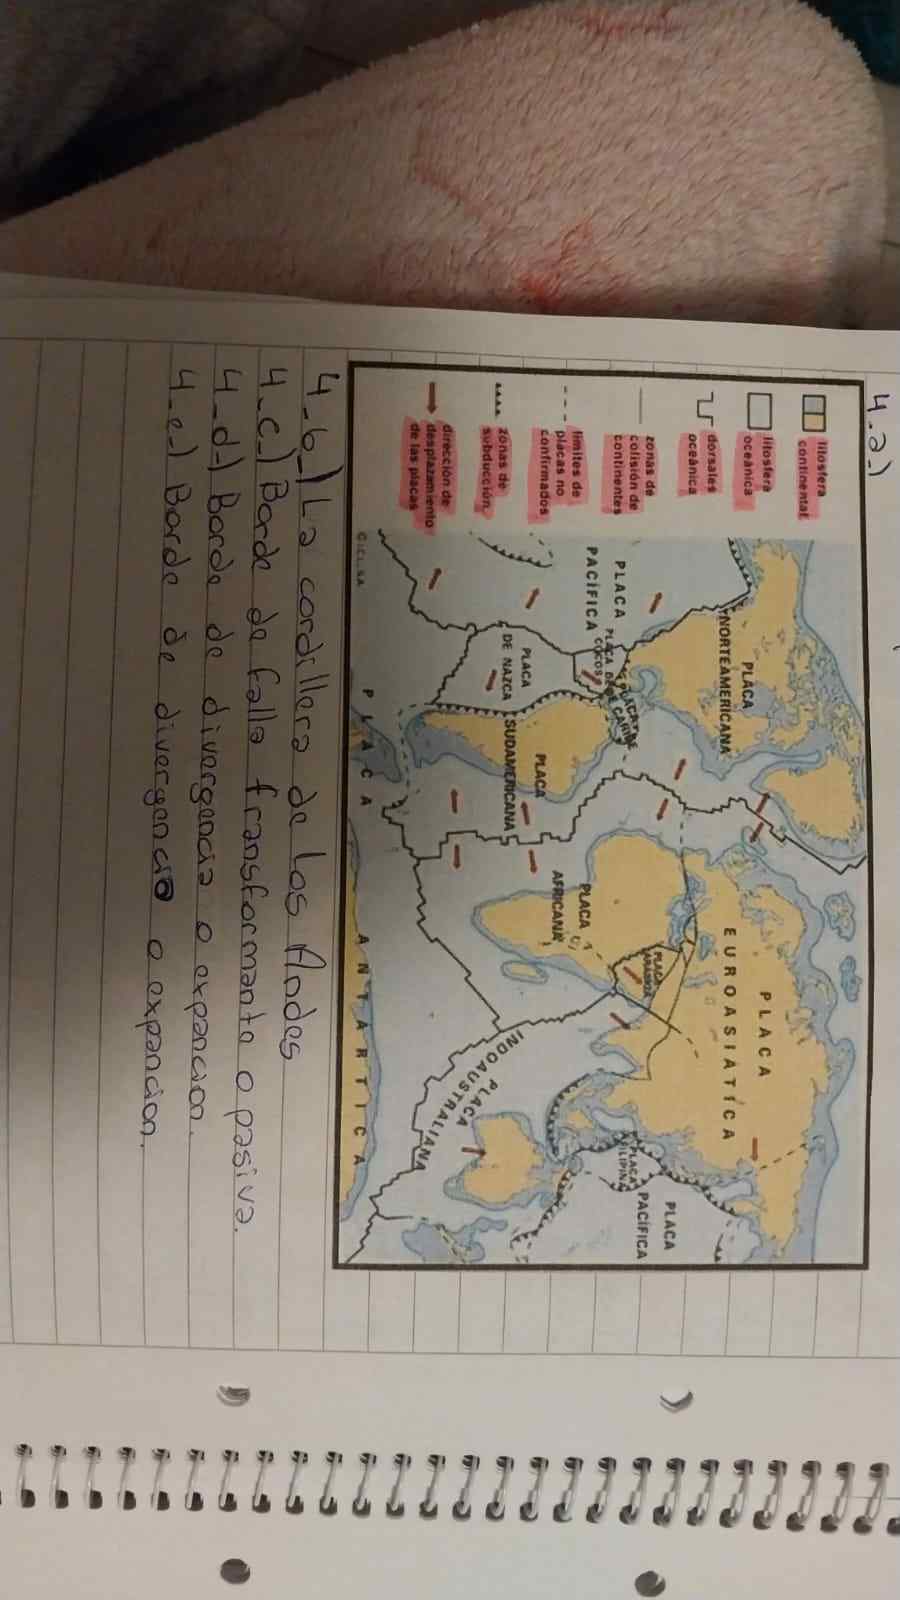 4.a-)
litosfera
continental
litosfera
oceánica
dorsales
oceánica
zonas de
colisión de
continentes
límites de
placas no
confirmados
zonas de
subducción
dirección de
desplazamiento
de las placas
PLACA
NORTEAMERICANA
PLACA
EUROASIATICA
PLACA
PACÍFICA
PLACA DE
COCOS
PLACA DE
CARIBE
PLACA
ARABIGA
PLACA
FILIPINA
PLACA
PACÍFICA
PLACA
DE NAZCA
PLACA
SUDAMERICANA
PLACA
AFRICANA
PLACA
INDOAUSTRALIANA
PLACA ANTARTICA
4-b-) La cordillera de los Andes
4-c-) Borde de falla transformante o pasiva.
4-d-) Borde de divergencia o expancion.
4-e-) Borde de divergencia o expancion.